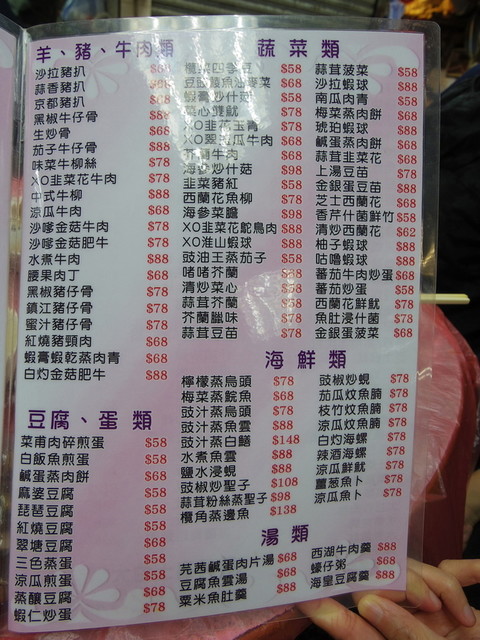 羊、豬、牛肉類
沙拉豬扒 $68
蒜香豬扒
京都豬扒 $68
黑椒牛仔骨
生炒骨
茄子牛仔骨 $88
味菜牛柳絲 $78
XO韭菜花牛肉 $78
中式牛柳 $88
涼瓜牛肉 $68
沙嗲金菇牛肉 $78
沙嗲金菇肥牛 $78
水煮牛肉 $88
腰果肉丁 $68
黑椒豬仔骨 $78
鎮江豬仔骨 $78
蜜汁豬仔骨 $78
紅燒豬頸肉 $68
蝦膏蝦乾蒸肉青 $68
白灼金菇肥牛 $88
豆腐、蛋類
菜甫肉碎煎蛋 $58
白飯魚煎蛋 $58
鹹蛋蒸肉餅 $68
麻婆豆腐 $58
琵琶豆腐 $58
紅燒豆腐 $58
翠塘豆腐 $68
三色蒸蛋 $58
涼瓜煎蛋 $58
蒸釀豆腐 $68
蝦仁炒蛋 $78
蔬菜類
欖菜四季豆 $58
豆豉鯪魚油麥菜 $68
蝦膏炒什菜 $58
菜心魷魚 $78
XO韭花玉青 $78
XO翠玉瓜牛肉 $68
芥蘭牛肉 $68
海參炒什菇 $98
韭菜豬紅 $58
西蘭花魚柳 $78
海參菜膽 $98
XO韭菜花鴕鳥肉 $88
XO淮山蝦球 $88
豉油王蒸茄子 $58
啫啫芥蘭 $58
清炒菜心 $58
蒜茸芥蘭 $58
芥蘭臘味 $78
蒜茸豆苗 $78
蒜茸菠菜 $58
沙拉蝦球 $88
南瓜肉青 $58
梅菜蒸肉餅 $68
琥珀蝦球 $88
鹹蛋蒸肉餅 $68
蒜茸韭菜花 $68
上湯豆苗 $78
金銀蛋豆苗 $88
芝士西蘭花 $68
香芹什菌鮮竹 $58
清炒西蘭花 $62
柚子蝦球 $88
咕嚕蝦球 $88
蕃茄牛肉炒蛋 $68
蕃茄炒蛋 $58
西蘭花鮮魷 $78
魚肚浸什菌 $78
金銀蛋菠菜 $68
海鮮類
檸檬蒸烏頭 $78
梅菜蒸鯇魚 $68
豉汁蒸烏頭 $78
豉汁蒸魚雲 $88
豉汁蒸白鱔 $148
水煮魚雲 $88
鹽水浸蜆 $88
豉椒炒聖子 $108
蒜茸粉絲蒸聖子 $98
欖角蒸邊魚 $138
豉椒炒蜆 $78
茄瓜炆魚腩 $78
枝竹炆魚腩 $78
涼瓜炆魚腩 $78
白灼海螺 $78
辣酒海螺 $78
涼瓜鮮魷 $78
薑葱魚卜 $78
涼瓜魚卜 $78
湯類
芫茜鹹蛋肉片湯 $68
豆腐魚雲湯 $68
粟米魚肚羹 $88
西湖牛肉羹 $88
蠔仔粥 $68
海皇豆腐羹 $88